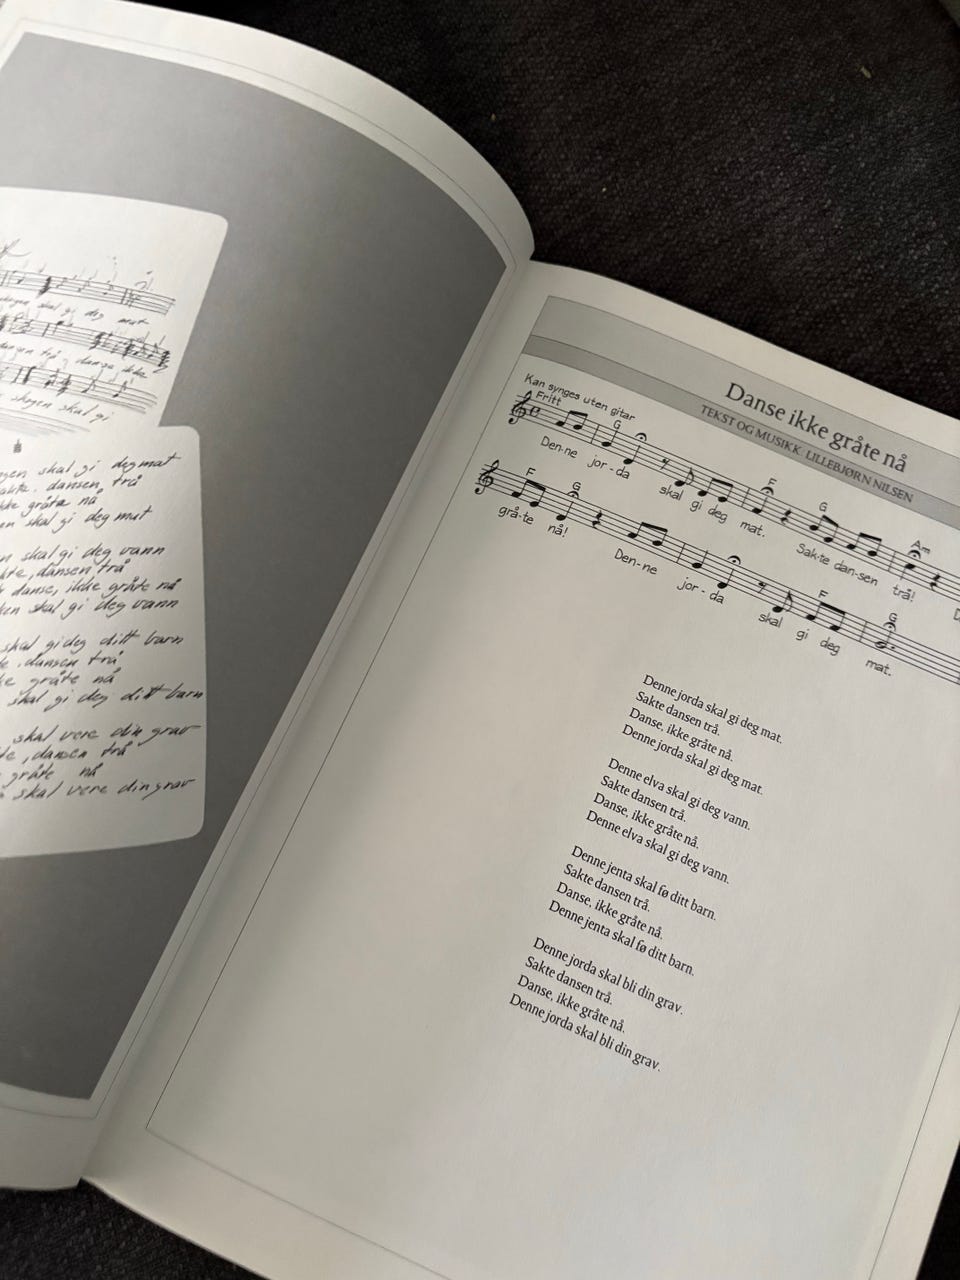 skogen skal gi deg mat
dansen trå, danse ikke
skogen skal gi
skal gi deg mat
dansen trå
ikke gråte nå
skal gi deg mat
skal gi deg vann
dansen trå
danse, ikke gråte nå
skal gi deg vann
skal gi deg ditt barn
dansen trå
gråte nå
skal gi deg ditt barn
skal vere din grav
dansen trå
gråte nå
skal vere din grav
Danse ikke gråte nå
TEKST OG MUSIKK: LILLEBJØRN NILSEN
Kan synges uten gitar
Fritt
G F G Am
Den-ne jor-da skal gi deg mat. Sak-te dan-sen trå!
F G F G
grå-te nå! Den-ne jor-da skal gi deg mat.
Denne jorda skal gi deg mat.
Sakte dansen trå.
Danse, ikke gråte nå.
Denne jorda skal gi deg mat.
Denne elva skal gi deg vann.
Sakte dansen trå.
Danse, ikke gråte nå.
Denne elva skal gi deg vann.
Denne jenta skal fø ditt barn.
Sakte dansen trå.
Danse, ikke gråte nå.
Denne jenta skal fø ditt barn.
Denne jorda skal bli din grav.
Sakte dansen trå.
Danse, ikke gråte nå.
Denne jorda skal bli din grav.